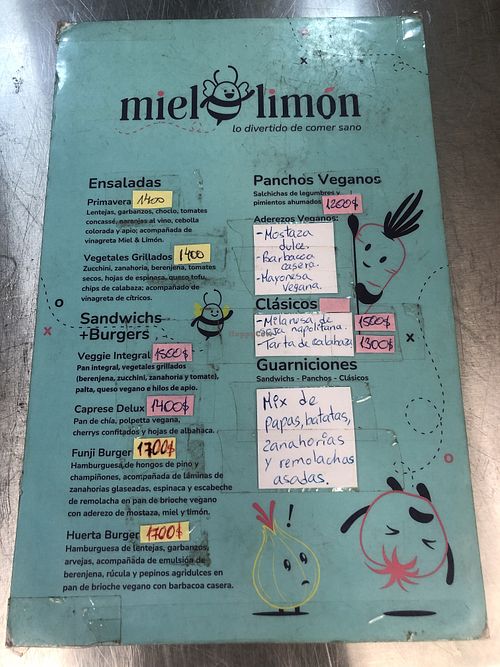 miel limón
lo divertido de comer sano
Ensaladas
Primavera 1400
Lentejas, garbanzos, choclo, tomates
concassé, naranjas al vino, cebolla
colorada y apio; acompañada de
vinagreta Miel & Limón.
Vegetales Grillados 1400
Zucchini, zanahoria, berenjena, tomates
secos, hojas de espinaca, queso tofu,
chips de calabaza; acompañado de
vinagreta de cítricos.
Sandwichs
+Burgers
Veggie Integral 1500$
Pan integral, vegetales grillados
(berenjena, zucchini, zanahoria y tomate),
palta, queso vegano e hilos de apio.
Caprese Delux 1400$
Pan de chía, polpetta vegana,
cherrys confitados y hojas de albahaca.
Funji Burger 1700$
Hamburguesa de hongos de pino y
champiñones, acompañada de láminas de
zanahorias glaseadas, espinaca y escabeche
de remolacha en pan de brioche vegano
con aderezo de mostaza, miel y tomillo.
Huerta Burger 1700$
Hamburguesa de lentejas, garbanzos,
arvejas, acompañada de emulsión de
berenjena, rúcula y pepinos agridulces en
pan de brioche vegano con barbacoa casera.
Panchos Veganos
Salchichas de legumbres y
pimientos ahumados 1200$
Aderezos Veganos:
-Mostaza
dulce.
-Barbacoa
casera.
-Mayonesa
vegana.
Clásicos
-Milanesa de
soja napolitana. 1500$
Tarta de calabaza 1300$
Guarniciones
Sandwichs - Panchos - Clásicos
Mix de
papas, batatas,
zanahorias
y remolachas
asadas.